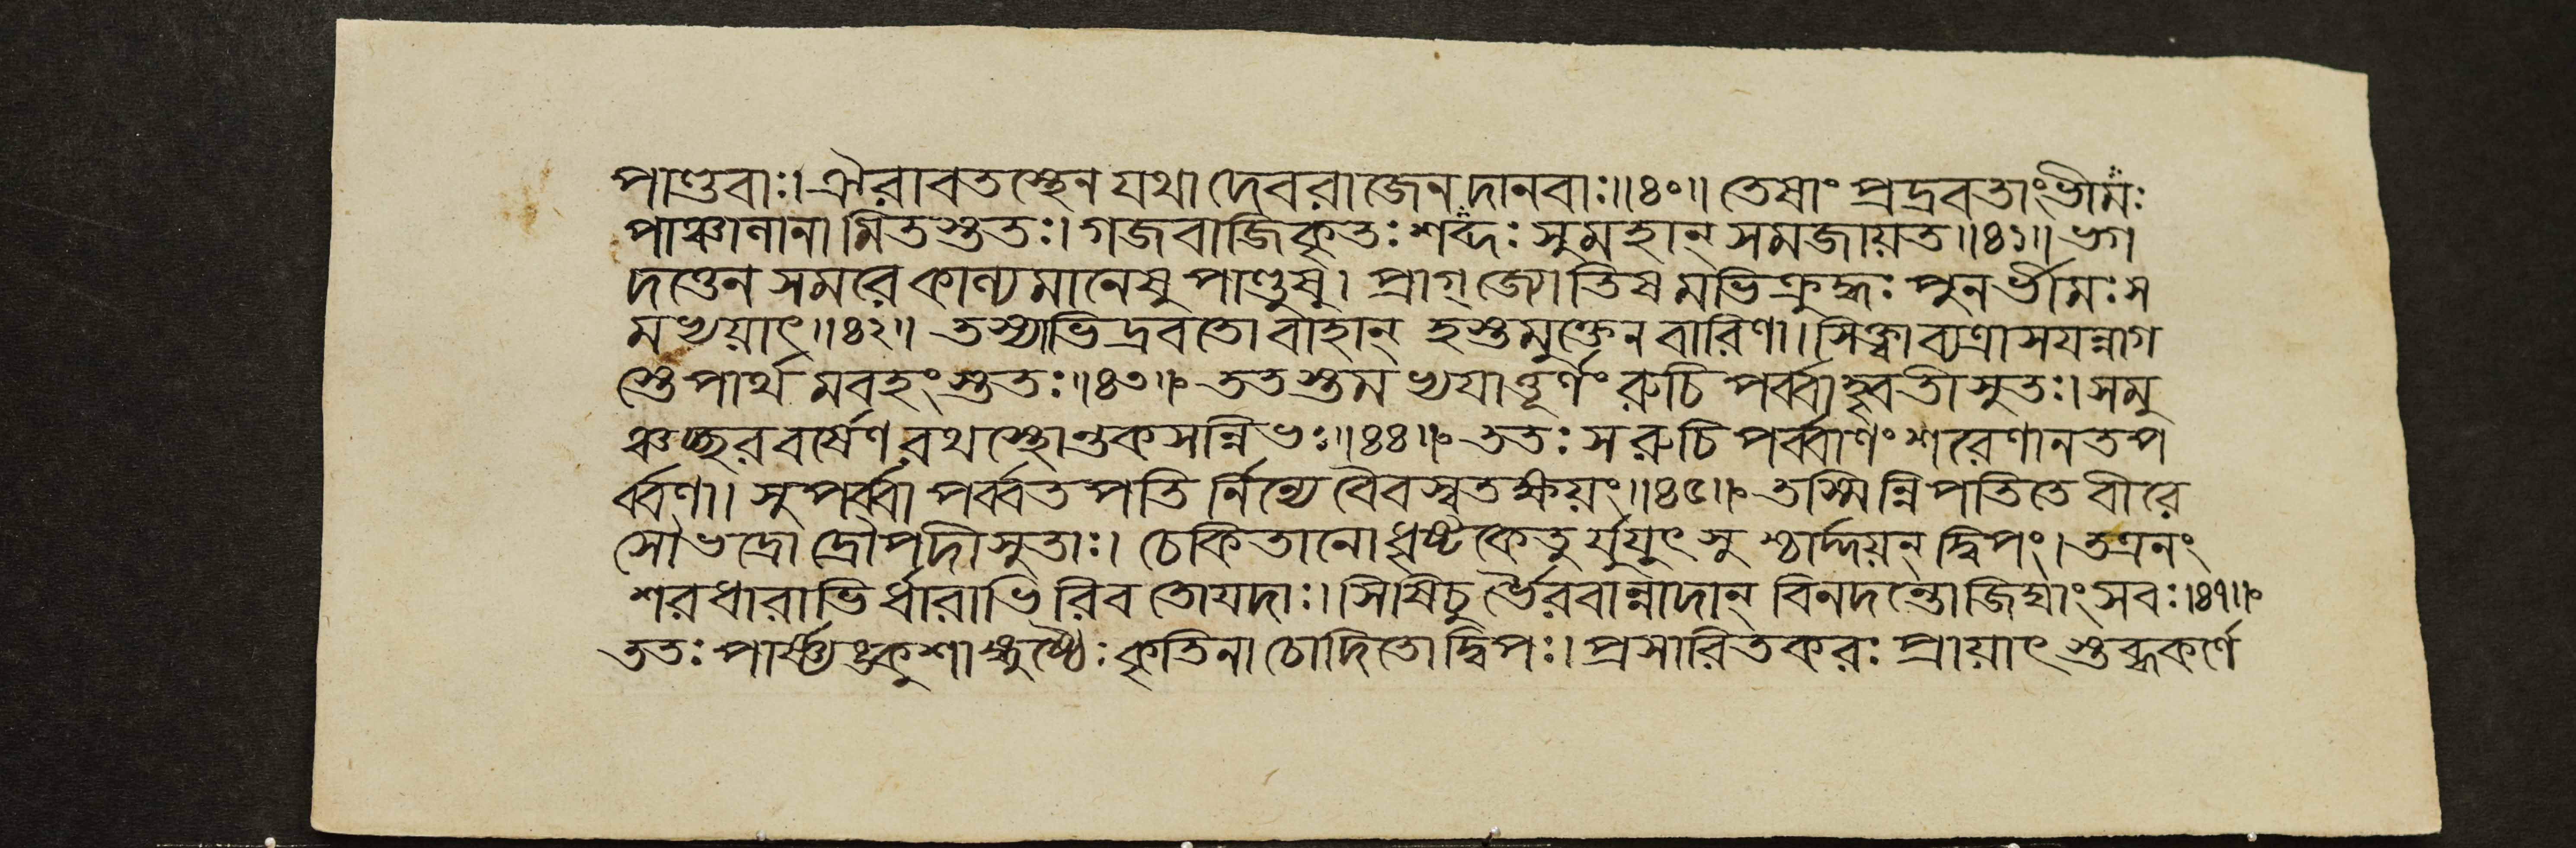 পাণ্ডবাঃ। ঐরাবতস্থেন যথা দেবরাজেন দানবাঃ॥৪০॥ তেষাং প্রদ্রবতাং ভীমঃ
পাঞ্চালানামিতস্তুতঃ। গজবাজিকৃতঃ শব্দঃ সুমহান্ সমজায়ত॥৪১॥ ভগ
দত্তেন সমরে কাল্যমানেষু পাণ্ডুষু। প্রাগ্জ্যোতিষমভিক্রুদ্ধঃ পুনর্ভীমঃ স
মভ্যয়াৎ॥৪২॥ তস্যাভিদ্রবতো বাহান্ হস্তমুক্তেন বারিণা। সিক্ত্বা ব্যত্রাসযন্নাগ
স্তে পার্থমবহংস্তুতঃ॥৪৩॥ ততস্তমভ্যযাত্তূর্ণং রুচিপর্ব্বাহৃবতীসুতঃ। সমু
ঞ্চচ্ছরবর্ষেণ রথস্থোন্তকসন্নিভঃ॥৪৪॥ ততঃ স রুচিপর্ব্বাণং শরেণানতপ
র্ব্বণা। সুপর্ব্বা পর্ব্বতপতির্নিন্যে বৈবস্বতক্ষয়ং॥৪৫॥ তস্মিন্নিপতিতে বীরে
সৌভদ্রো দ্রৌপদীসুতাঃ। চেকিতানো ধৃষ্টকেতুর্যুযুৎসুশ্চার্দ্দয়ন্ দ্বিপং। তএনং
শরধারাভির্ধারাভিরিব তোযদাঃ। সিষিচুর্ভৈরবান্নাদান্ বিনদন্তো জিঘাংসবঃ।৪৭॥
ততঃ পার্ষ্ণ্যঙ্কুশাঙ্গুষ্ঠৈঃ কৃতিনা চোদিতো দ্বিপঃ। প্রসারিতকরঃ প্রায়াৎ স্তব্ধকর্ণে